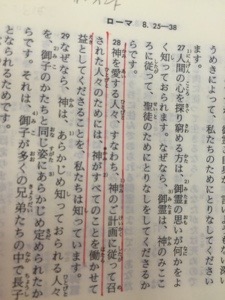 ローマ 8. 25—38
うめきによって、私たちのためにとりなしてください
ます。
27 人間の心を探り窮める方は、御霊の思いが何かをよ
く知っておられます。なぜなら、御霊は、神のみここ
ろに従って、聖徒のためにとりなしをしてくださるか
らです。
28 神を愛する人々、すなわち、神のご計画に従って召
された人々のためには、神がすべてのことを働かせて
益としてくださることを、私たちは知っています。
29 なぜなら、神は、あらかじめ知っておられる人々
を、御子のかたちと同じ姿にあらかじめ定められたか
らです。それは、御子が多くの兄弟たちの中で長子
となられるためです。